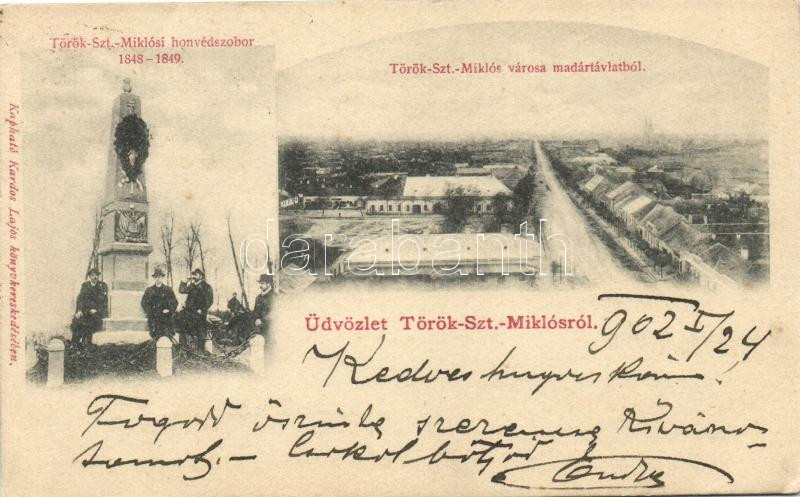 Török-Szt.-Miklósi honvédszobor
1848-1849.
Török-Szt.-Miklós városa madártávlatból.
Kapható Kardos Lajos könyvkereskedésében.
darabanth
Üdvözlet Török-Szt.-Miklósról.
902 I/24
Kedves hugocskám!
Fogadd őszinte szerencse kívána-
Csókol bátyád Endre